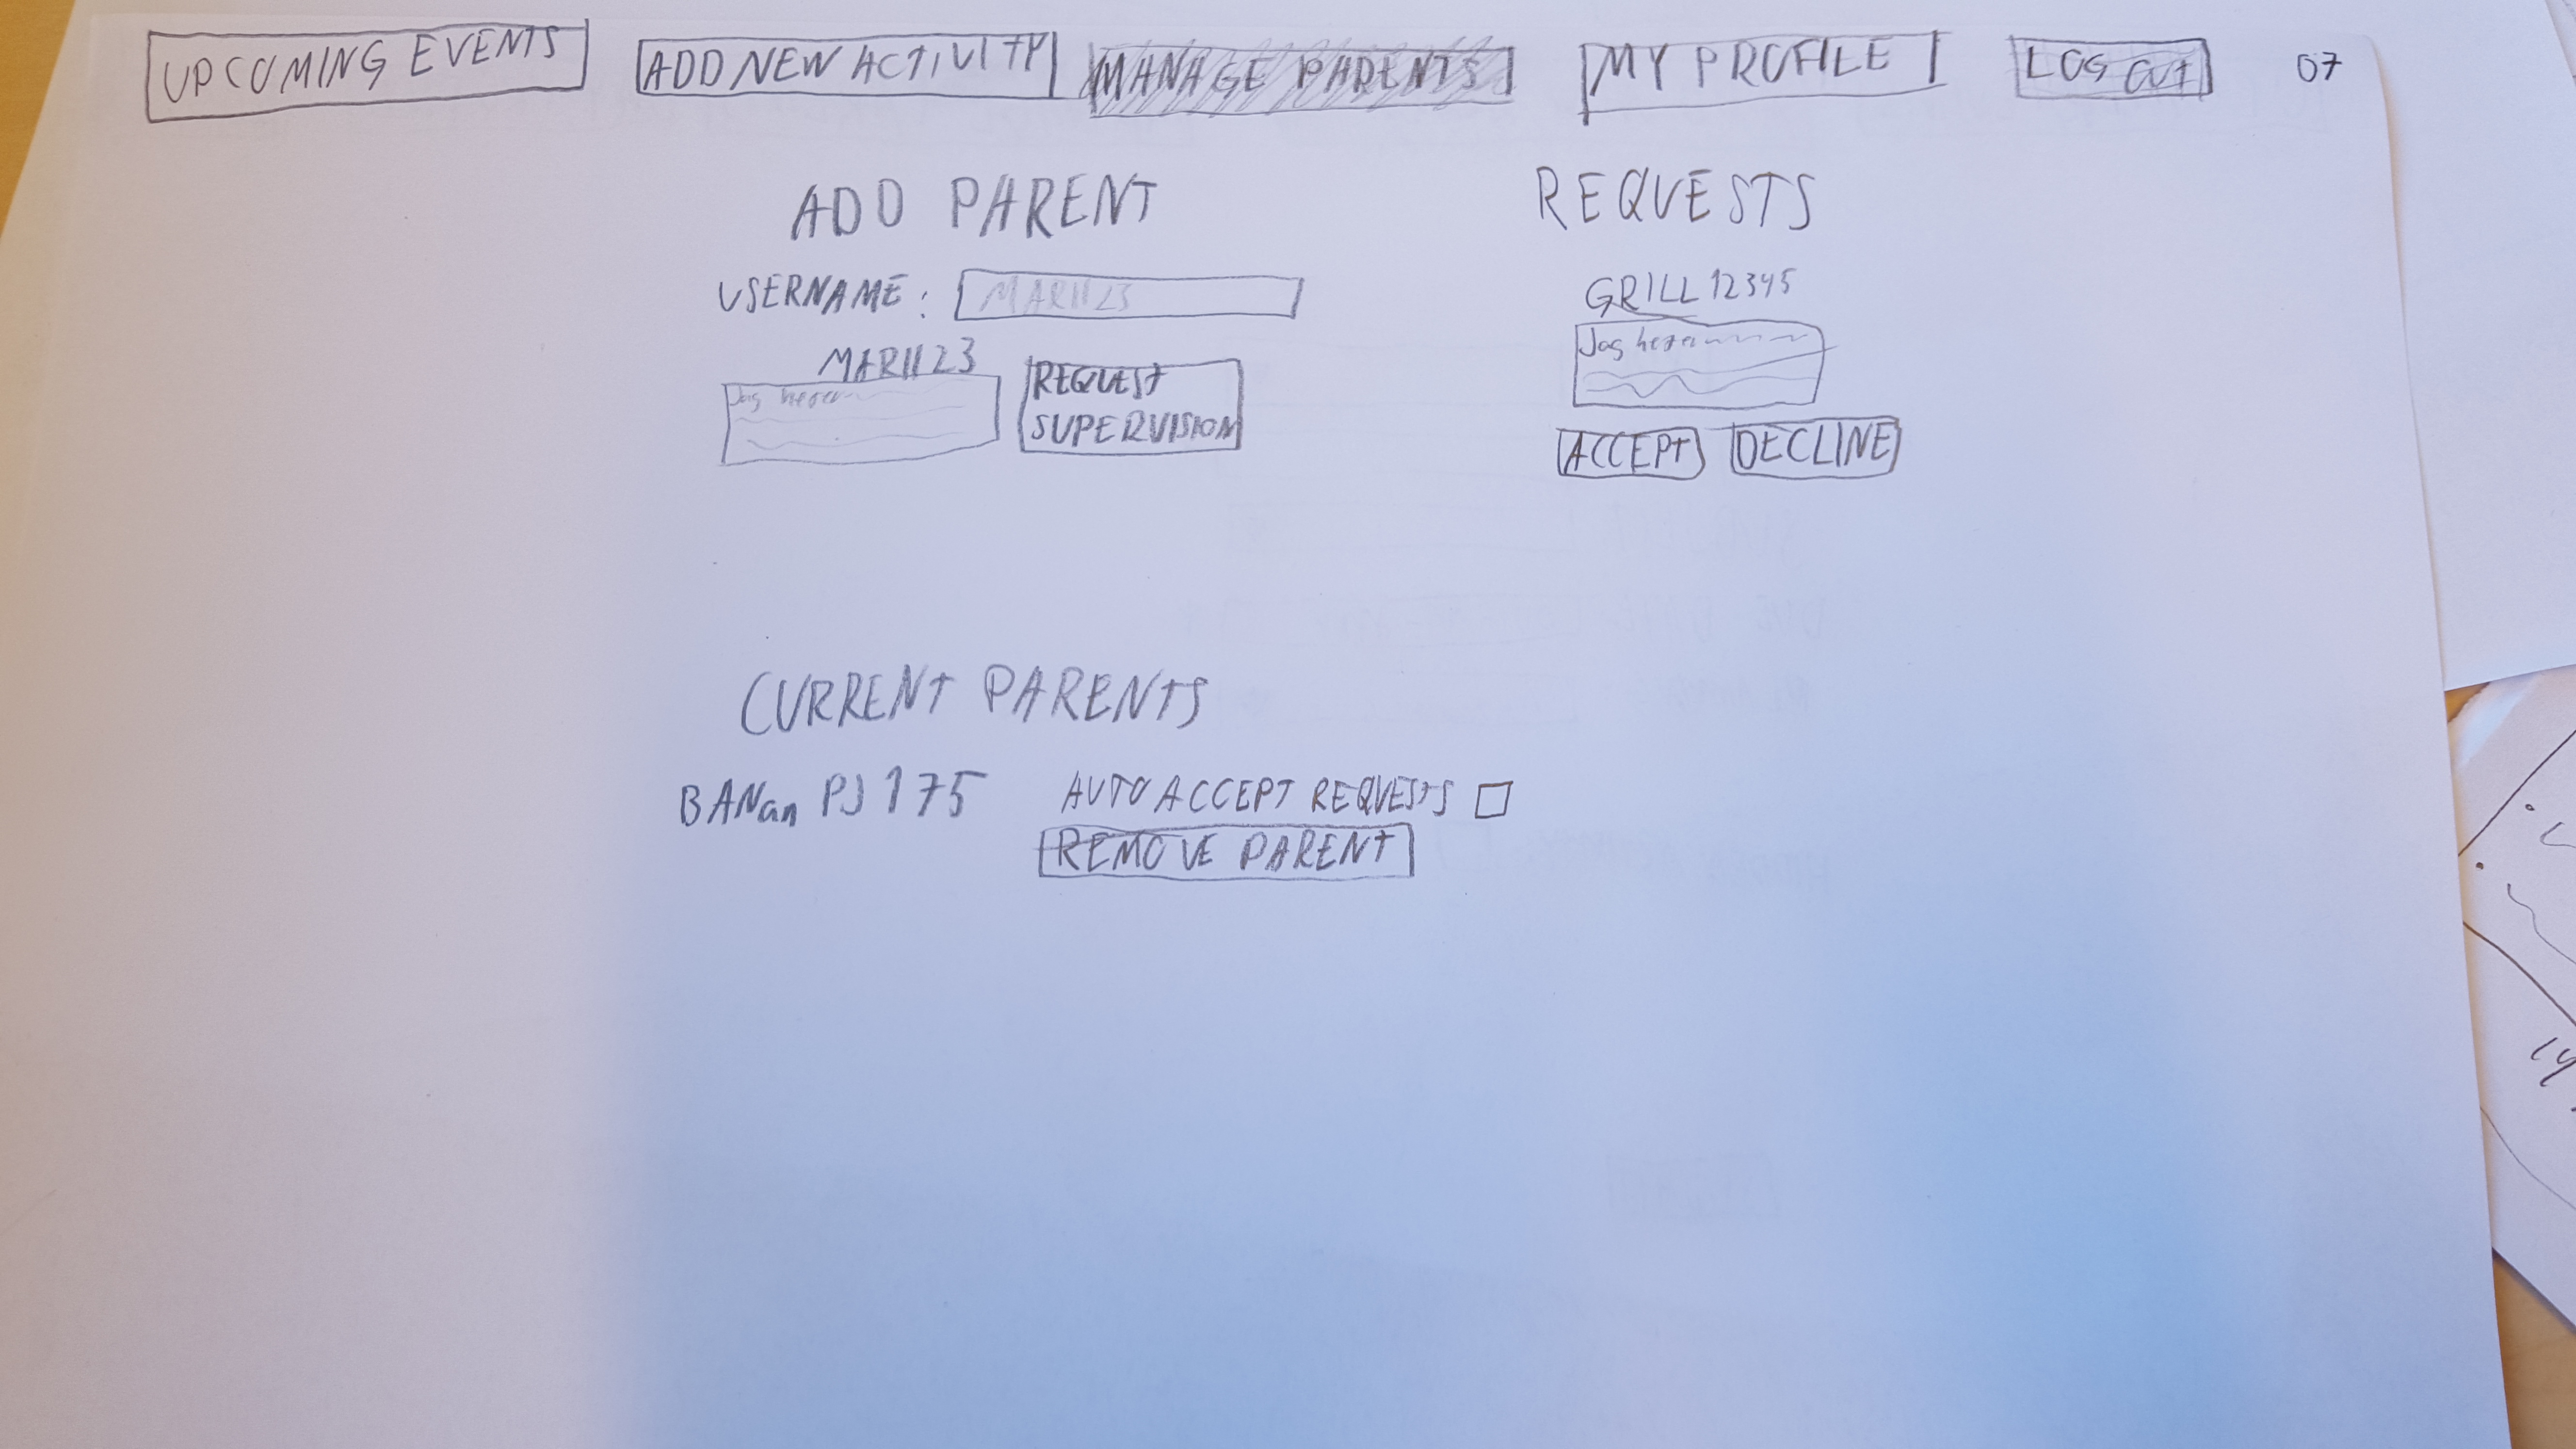 UPCOMING EVENTS ADD NEW ACTIVITY MANAGE PARENTS MY PROFILE LOG OUT 07
ADD PARENT
USERNAME: MARI123
MARI123
Jag heter
REQUEST
SUPERVISION
REQUESTS
GRILL12345
Jag heter
ACCEPT DECLINE
CURRENT PARENTS
BANan PJ175 AUTO ACCEPT REQUESTS
REMOVE PARENT